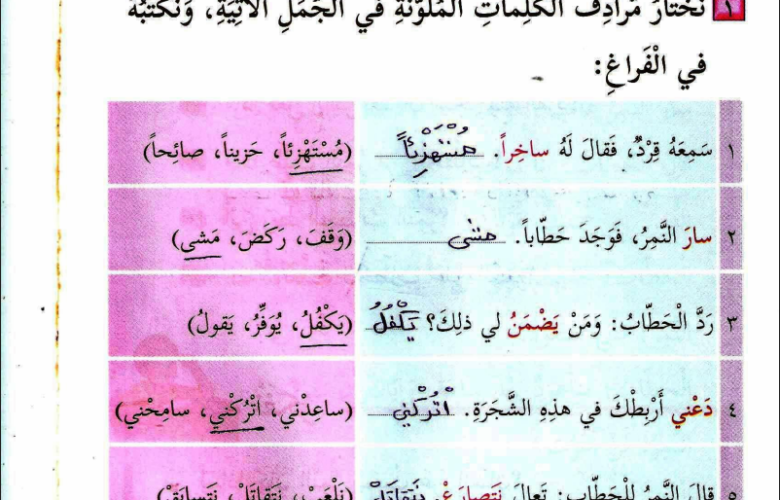 ١ نَخْتارُ مُرادِفَ الْكَلِماتِ الْمُلَوَّنَةِ في الْجُمَلِ الْآتِيَةِ، وَنَكْتُبُهُ
في الْفَراغِ:
١ سَمِعَهُ قِرْدٌ، فَقالَ لَهُ ساخِراً. مُسْتَهْزِئاً (مُسْتَهْزِئاً، حَزيناً، صائِحاً)
٢ سارَ النَّمِرُ، فَوَجَدَ حَطّاباً. مشى (وَقَفَ، رَكَضَ، مَشى)
٣ رَدَّ الْحَطّابُ: وَمَنْ يَضْمَنُ لي ذلِكَ؟ يَكْفُلُ (يَكْفُلُ، يُوَفِّرُ، يَقولُ)
٤ دَعْني أَرْبِطْكَ في هذِهِ الشَّجَرَةِ. اتْرُكْني (ساعِدْني، اتْرُكْني، سامِحْني)
٥ قالَ النَّمِرُ لِلْحَطّابِ: تَعالَ نَتَصارَعْ. نَتَقاتَلْ (نَلْعَبْ، نَتَقاتَلْ، نَتَسابَقْ)